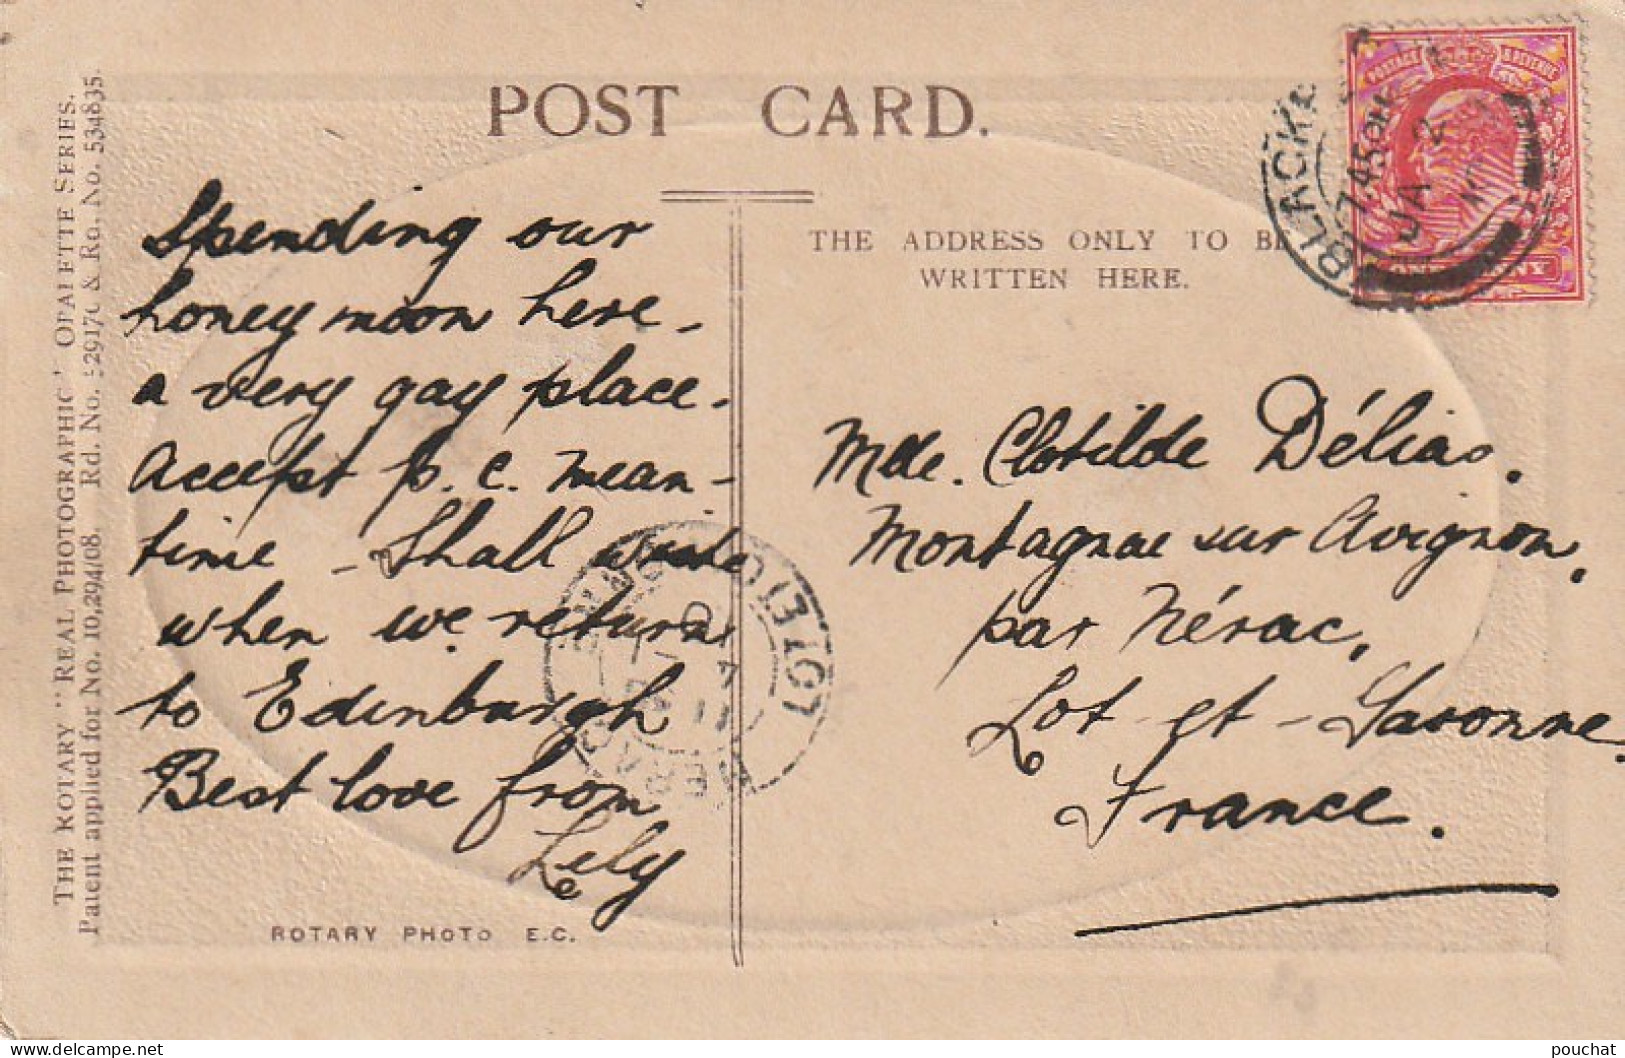 POST CARD.
THE ROTARY "REAL PHOTOGRAPHIC" OPALETTE SERIES.
Patent applied for No. 10,294/08. Rd. No. 529170 & Rd. No. 534835.
Spending our
honey moon here -
a very gay place.
Accept p. c. mean-
time - Shall write
when we return
to Edinburgh
Best love from
Lely
ROTARY PHOTO E.C.
THE ADDRESS ONLY TO BE
WRITTEN HERE.
POSTAGE & REVENUE
ONE PENNY
7.45 PM
JA 2
Mlle. Clotilde Délias.
Montagnac sur Avignon,
par Nérac,
Lot-et-Garonne.
France.
LOT-ET-G
pouchat